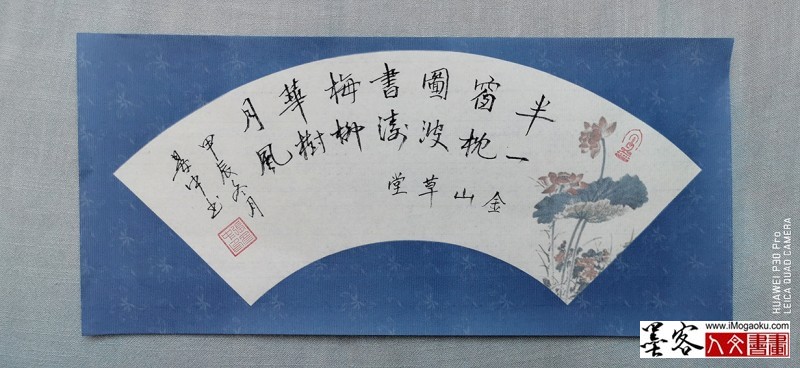 半窗圖書梅華月
一枕波濤柳樹風
金山草堂
甲辰冬月
中书
HUAWEI P30 Pro
LEICA QUAD CAMERA
www.iMogaoku.com
墨客
人文書畫